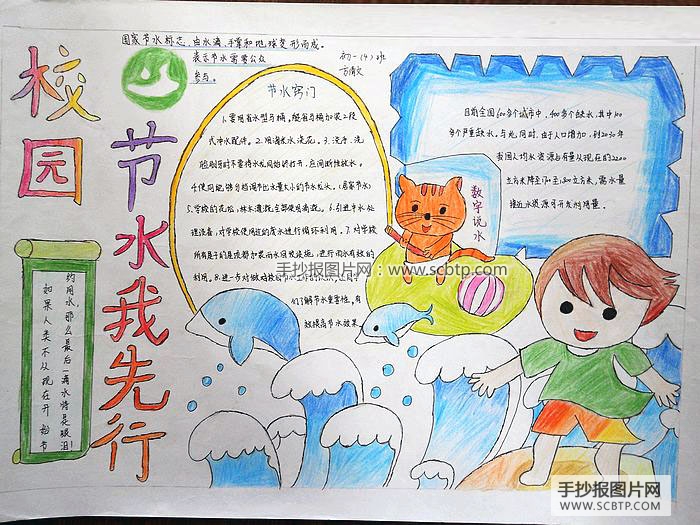 校园
节水我先行
国家节水标志，由水滴、手掌和地球变形而成。
表示节水需要公众
参与。
初一(4)班
方倩文
节水窍门
1.家用省水型马桶，能省马桶加装2段
式冲水配件。2.用淘米水浇花。3.洗手、洗
脸刷牙时不要将水龙头始终打开，应间断性放水。
4.使用能够分档调节出水量大小的节水龙头。(居家节水)
5.学校的花坛，林木灌溉全部使用滴灌。6.引进中水处
理设备，对学校使用过的废水进行循环利用。7.对学校
所有房子的屋顶都加装雨水回收设施，进行雨水有效的
利用。8.进一步
们了解节水重要性，有
效提高节水效果。
目前全国600多个城市中，400多个缺水，其中100
多个严重缺水。与此同时，由于人口增加，到2030年
我国人均水资源占有量从现在的2200
立方米降至1700至1800立方米，需水量
接近水资源可开发利用量。
数字说水
如果人类不从现在开始节
约用水，那么最后一滴水将是眼泪！
手抄报图片网：www.scbtp.com
手抄报图片网
WWW.SCBTP.COM